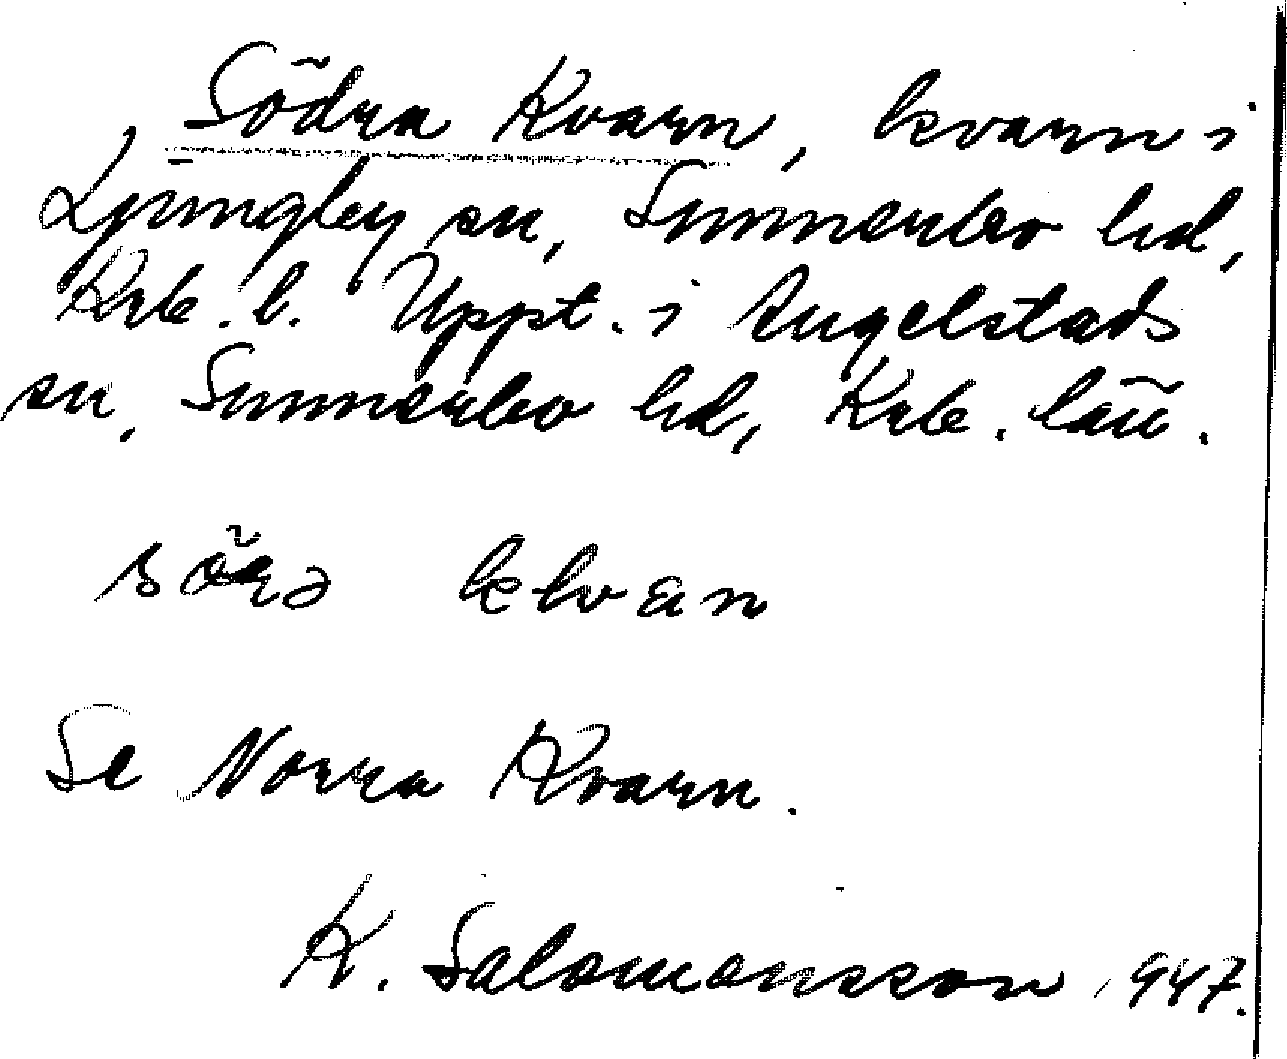 Södra Kvarn, kvarn i
Ljungby sn, Sunnerbo hd,
Krb. l. Uppt. i Angelstads
sn, Sunnerbo hd, Krb. län.
Se Norra Kvarn.
K. Salomonsson 1947.